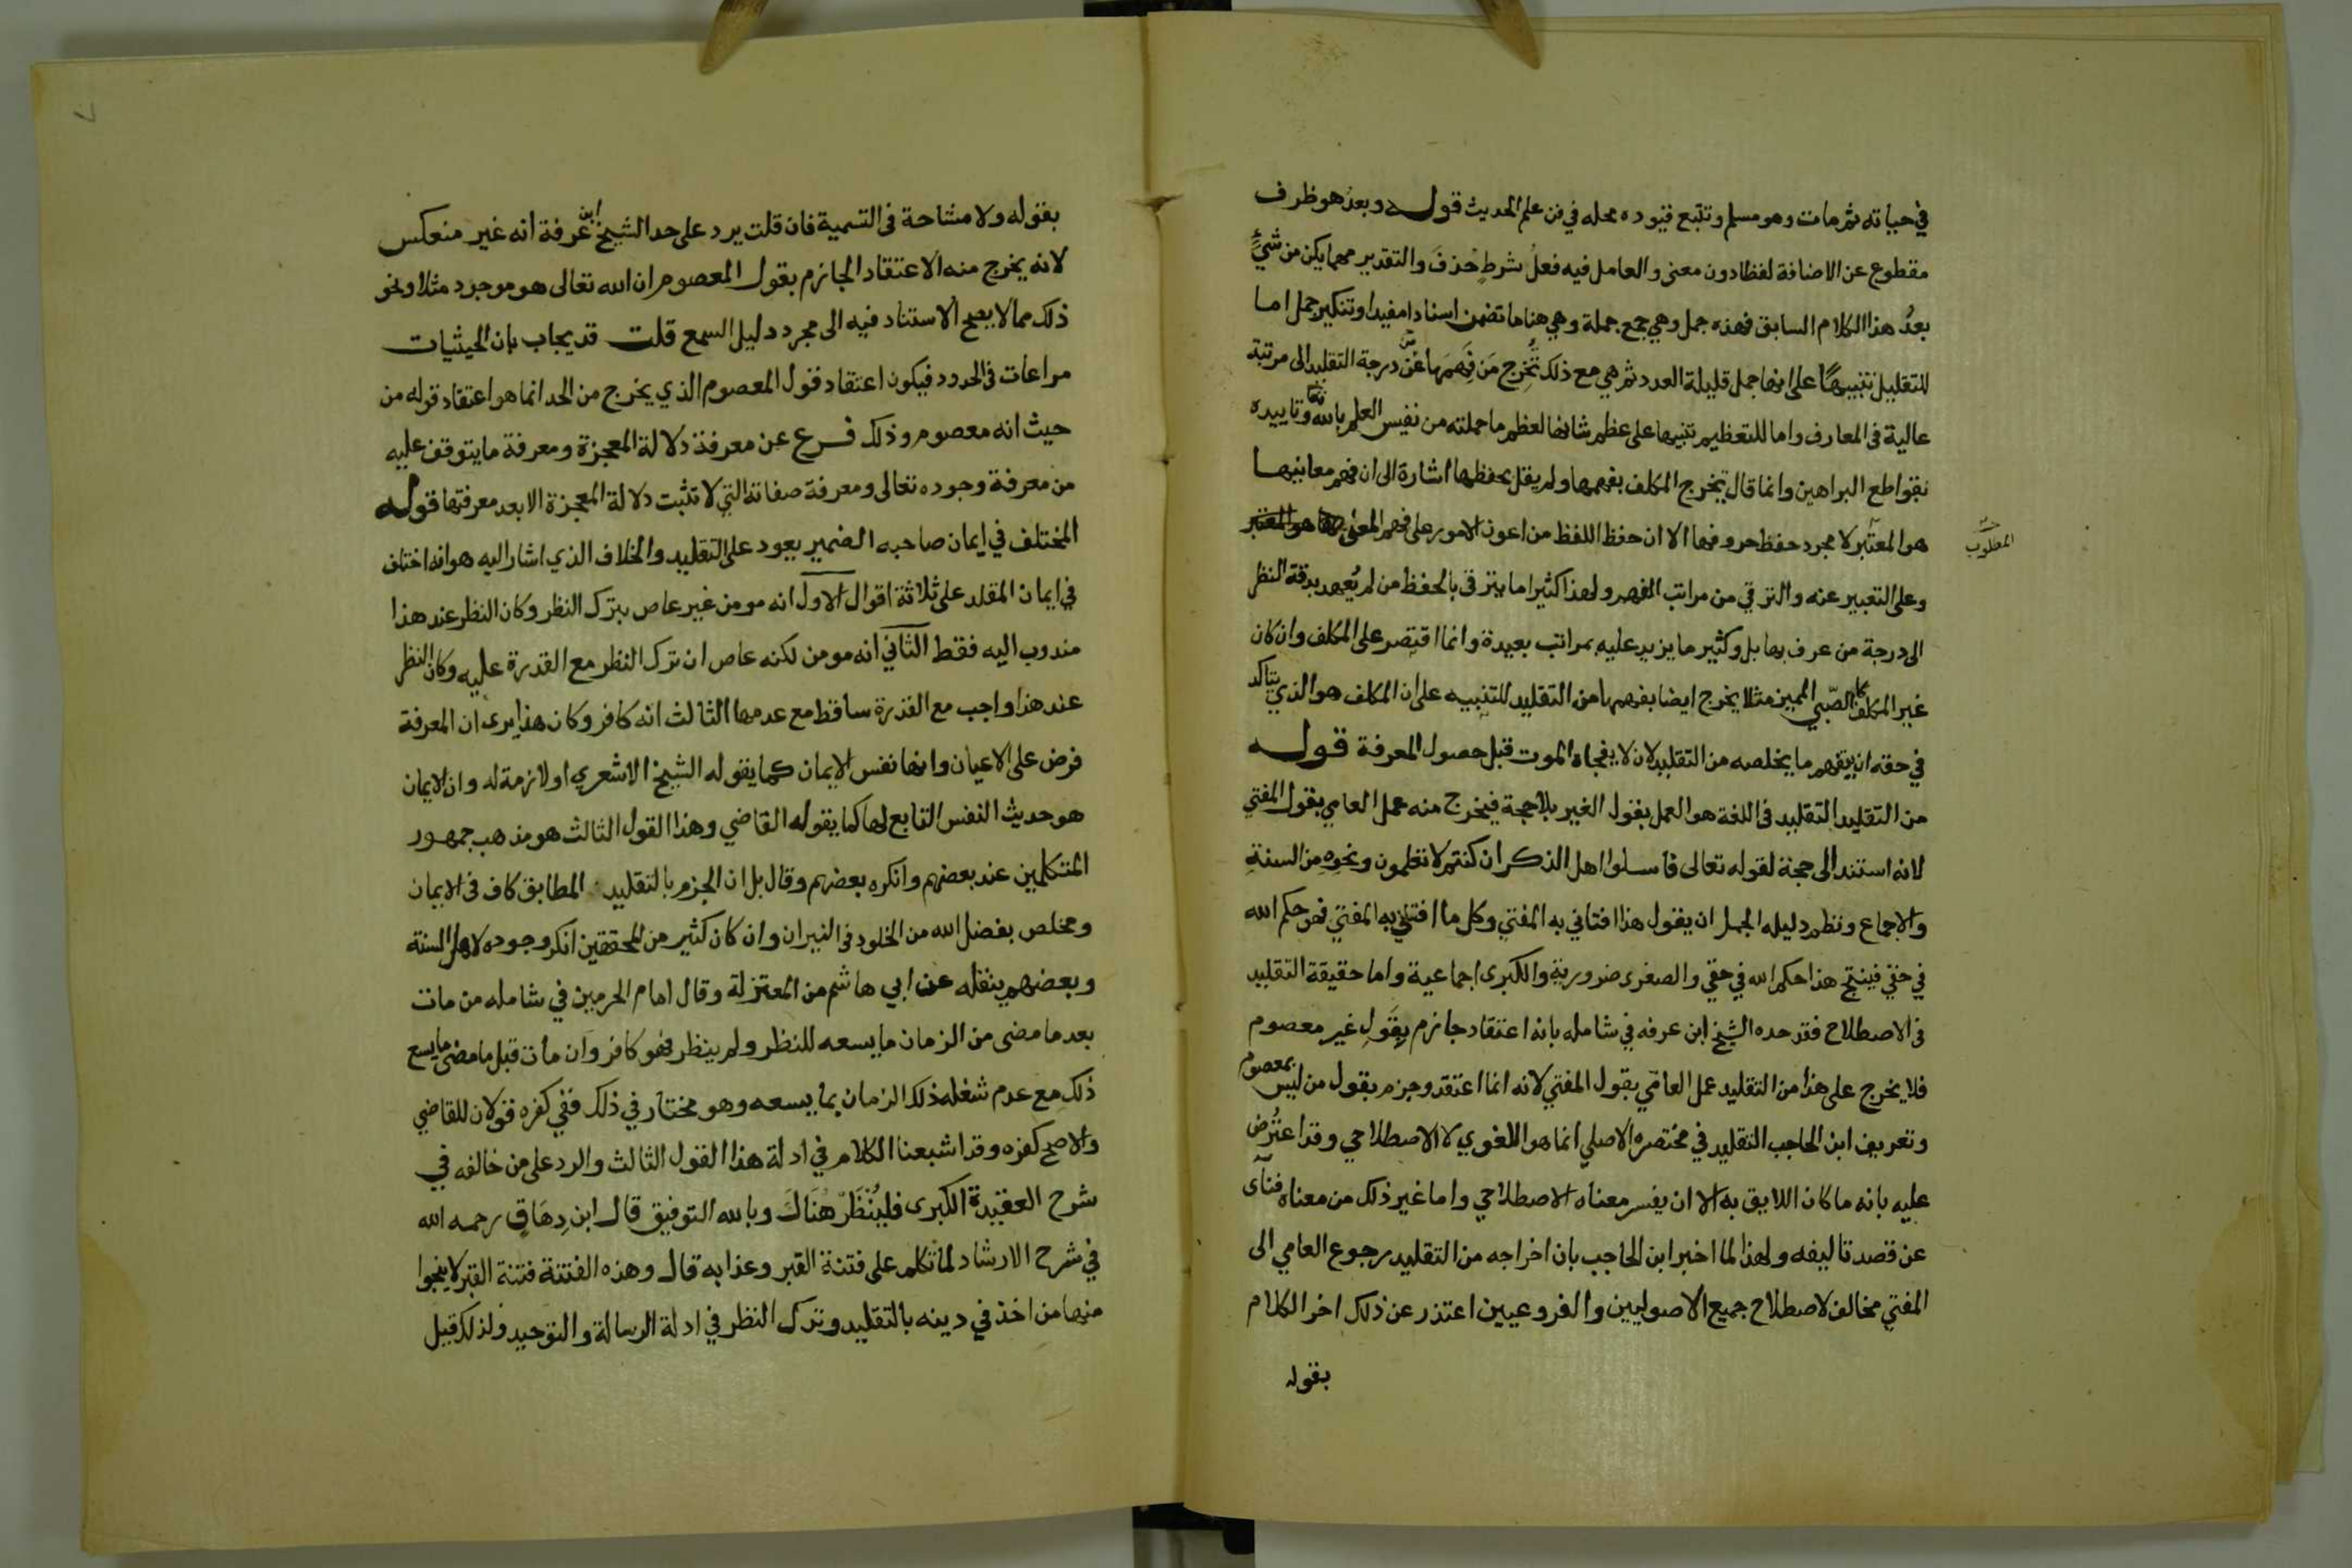 في حياته ثم مات وهو مسلم وتتبع قيوده محله في فن علم الحديث قوله وبعد هو ظرف
مقطوع عن الاضافة لفظا دون معنى والعامل فيه فعل شرط حذف والتقدير مهما يكن من شيء
بعد هذا الكلام السابق فهذه جمل وهي جمع جملة وهي هنا ما تضمن اسنادا مفيدا وتنكير جمل اما
للتقليل تنبيها على انها جمل قليلة العدد ثم هي مع ذلك تخرج من فهمها عن درجة التقليد الى مرتبة
عالية في المعارف واما للتعظيم تنبيها على عظم شانها لعظم ما حملته من نفيس العلم بالله وتاييده
بقواطع البراهين وانما قال تخرج المكلف بفهمها ولم يقل بحفظها اشارة الى ان فهم معانيها
هو المعتبر لا مجرد حفظ حروفها الا ان حفظ اللفظ من اعون الامور على فهم المعنى
المطلوب
وعلى التعبير عنه والترقي من مراتب الفهم ولهذا كثيرا ما يترقى بالحفظ من لم يعهد بدقة النظر
الى درجة من عرف بها بل وكثير ما يزيد عليه بمراتب بعيدة وانما اقتصر على المكلف وان كان
غير المكلف كالصبي المميز مثلا يخرج ايضا بفهمها من التقليد للتنبيه على ان المكلف هو الذي يتاكد
في حقه ان يفهم ما يخلصه من التقليد لان لا يفجاه الموت قبل حصول المعرفة قوله
من التقليد التقليد في اللغة هو العمل بقول الغير بلا حجة فيخرج منه عمل العامي بقول المفتي
لانه استند الى حجة لقوله تعالى فاسلوا اهل الذكر ان كنتم لا تعلمون ونحوه من السنة
والاجماع ونظم دليله الجمل ان يقول هذا افتاني به المفتي وكل ما افتاني به المفتي فهو حكم الله
في حقي فينتج هذا حكم الله في حقي والصغرى ضرورية والكبرى اجماعية واما حقيقة التقليد
في الاصطلاح فقد حده الشيخ ابن عرفه في شامله بانه اعتقاد جازم بقول غير معصوم
فلا يخرج على هذا من التقليد عمل العامي بقول المفتي لانه انما اعتقد وجزم بقول من ليس بمعصوم
وتعريف ابن الحاجب التقليد في مختصره الاصلي انما هو اللغوي لا الاصطلاحي وقد اعترض
عليه بانه ما كان اللايق به الا ان يفسر معناه الاصطلاحي واما غير ذلك من معناه فناى
عن قصد تاليفه ولهذا لما اخبر ابن الحاجب بان اخراجه من التقليد رجوع العامي الى
المفتي مخالف لاصطلاح جميع الاصوليين والفروعيين اعتذر عن ذلك اخر الكلام
بقوله
بقوله ولا مشاحة في التسمية فان قلت يرد على حد الشيخ ابن عرفة انه غير منعكس
لانه يخرج منه الاعتقاد الجازم بقول المعصوم ان الله تعالى هو موجود مثلا ونحو
ذلك مما لا يصح الاستناد فيه الى مجرد دليل السمع قلت قد يجاب بان الحيثيات
مراعات في الحدود فيكون اعتقاد قول المعصوم الذي يخرج من الحد انما هو اعتقاد قوله من
حيث انه معصوم وذلك فرع عن معرفة دلالة المعجزة ومعرفة ما يتوقف عليه
من معرفة وجوده تعالى ومعرفة صفاته التي لا تثبت دلالة المعجزة الا بعد معرفتها قوله
المختلف في ايمان صاحبه الضمير يعود على التقليد والخلاف الذي اشار اليه هو انه اختلف
في ايمان المقلد على ثلاثة اقوال الاول انه مومن غير عاص بترك النظر وكان النظر عند هذا
مندوب اليه فقط الثاني انه مومن لكنه عاص ان ترك النظر مع القدرة عليه وكان النظر
عند هذا واجب مع القدرة ساقط مع عدمها الثالث انه كافر وكان هذا يرى ان المعرفة
فرض على الاعيان وانها نفس الايمان كما يقوله الشيخ الاشعري او لازمة له وان الايمان
هو حديث النفس التابع لها كما يقوله القاضي وهذا القول الثالث هو مذهب جمهور
المتكلمين عند بعضهم وانكره بعضهم وقال بل ان الجزم بالتقليد المطابق كاف في الايمان
ومخلص بفضل الله من الخلود في النيران وان كان كثير من المحققين انكر وجوده لاهل السنة
وبعضهم ينقله عن ابي هاشم من المعتزلة وقال امام الحرمين في شامله من مات
بعد ما مضى من الزمان ما يسعه للنظر ولم ينظر فهو كافر وان مات قبل ما مضى ما يسع
ذلك مع عدم شغله ذلك الزمان بما يسعه وهو مختار في ذلك ففي كفره قولان للقاضي
والاصح كفره وقد اشبعنا الكلام في ادلة هذا القول الثالث والرد على من خالفه في
شرح العقيدة الكبرى فلينظر هناك وبالله التوفيق قال ابن دهاق رحمه الله
في شرح الارشاد لما تكلم على فتنة القبر وعذابه قال وهذه الفتنة فتنة القبر لا ينجوا
منها من اخذ في دينه بالتقليد وترك النظر في ادلة الرسالة والتوحيد ولذلك قيل